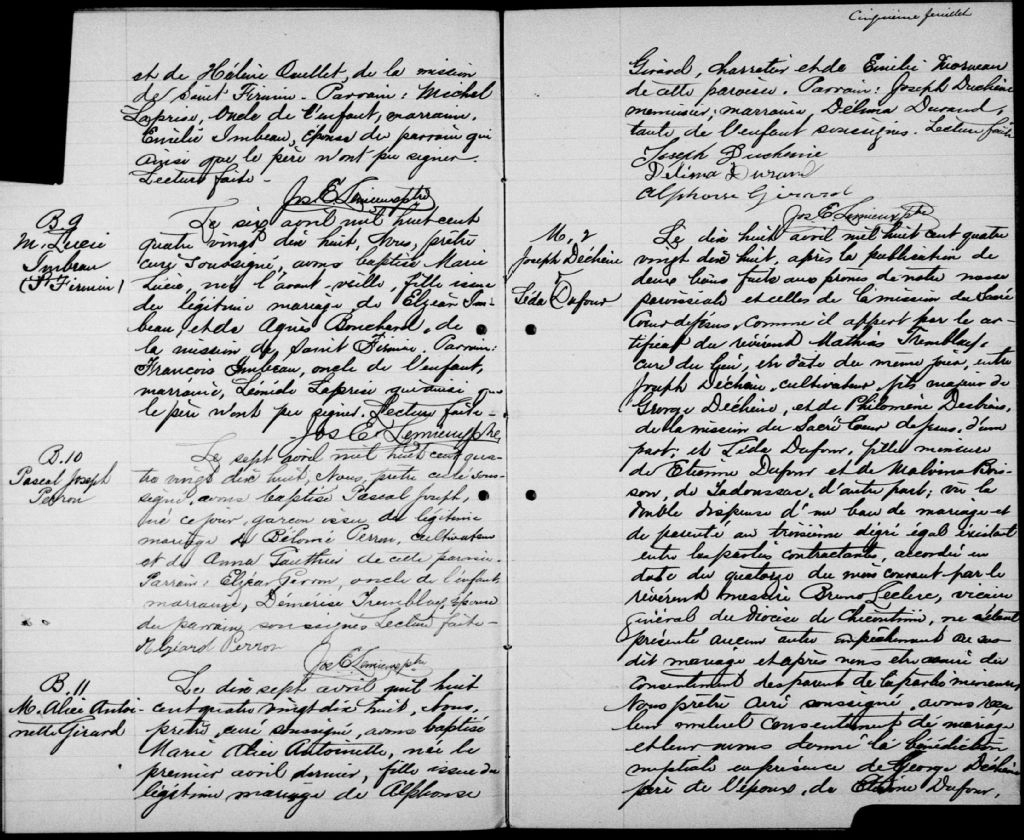 et de Hélène Ouellet, de la mission
de Saint Firmin - Parrain: Michel
Laprise, oncle de l'enfant, marraine,
Emélie Imbeau, épouse du parrain qui
ainsi que le père n'ont pu signer.
Lecture faite -
Jos E. Lemieux ptre
B 9
M. Lucie
Imbeau
(St Firmin)
Le six avril mil huit cent
quatre vingt dix huit, Nous, prêtre
curé soussigné, avons baptisé Marie
Lucie, née l'avant-veille, fille issue
du légitime mariage de Elzéar Im-
beau et de Agnès Bouchard, de
la mission de Saint Firmin. Parrain:
François Imbeau, oncle de l'enfant,
marraine, Laprise qui ainsi que
le père n'ont pu signer. Lecture faite -
Jos E. Lemieux ptre
B.10
Pascal Joseph
Perron
Le sept avril mil huit cent qua-
tre vingt dix huit, Nous, prêtre curé sous-
signé, avons baptisé Pascal Joseph,
né ce jour, garçon issu du légitime
mariage de Bélonie Perron, cultivateur
et de Anna Gauthier de cette paroisse.
Parrain: Elzéar Perron, oncle de l'enfant
marraine, Démérise Tremblay, épouse
du parrain, soussignés. Lecture faite -
Perron
Jos E. Lemieux ptre
B.11
M. Alice Antoi-
nette Girard
Le dix sept avril mil huit
cent quatre vingt dix huit, Nous,
prêtre, curé soussigné, avons baptisé
Marie Alice Antoinette, née le
premier avril dernier, fille issue du
légitime mariage de Alphonse
Cinquième feuillet
Girard, charretier et de Emélie Morneau
de cette paroisse. Parrain: Joseph Duchêne
menuisier, marraine, Délima Durand,
tante de l'enfant soussignés. Lecture faite
Joseph Duchêne
Délima Durand
Alphonse Girard
Jos E. Lemieux ptre
M. 2
Joseph Déchène
&
Léda Dufour
Le dix huit avril mil huit cent quatre
vingt dix huit, après la publication de
deux bans faite aux prônes de notre messe
paroissiale et celles de la mission du Sacré
Coeur de Jésus, comme il appert par le cer-
tificat du révérend Mathias Tremblay,
curé du lieu, en date du même jour, entre
Joseph Déchène, cultivateur, fils majeur de
George Déchène, et de Philomène Desbiens,
de la mission du Sacré Coeur de Jésus, d'une
part; et Léda Dufour, fille mineure
de Etienne Dufour et de Malvina Bois-
son, de Tadoussac, d'autre part; vu la
double dispense d'un banc de mariage et
de parenté au troisième degré égal existant
entre les parties contractantes, accordée en
date du quatorze du mois courant par le
révérend messire Bruno Leclerc, vicaire
général du diocèse de Chicoutimi, ne s'étant
présenté aucun autre empêchement au sus-
dit mariage et après nous être assuré du
consentement des parents de la partie mineure
Nous prêtre curé soussigné, avons reçu
leur mutuel consentement de mariage
et leur avons donné la bénédiction
nuptiale en présence de George Déchène
père de l'époux, de Etienne Dufour,